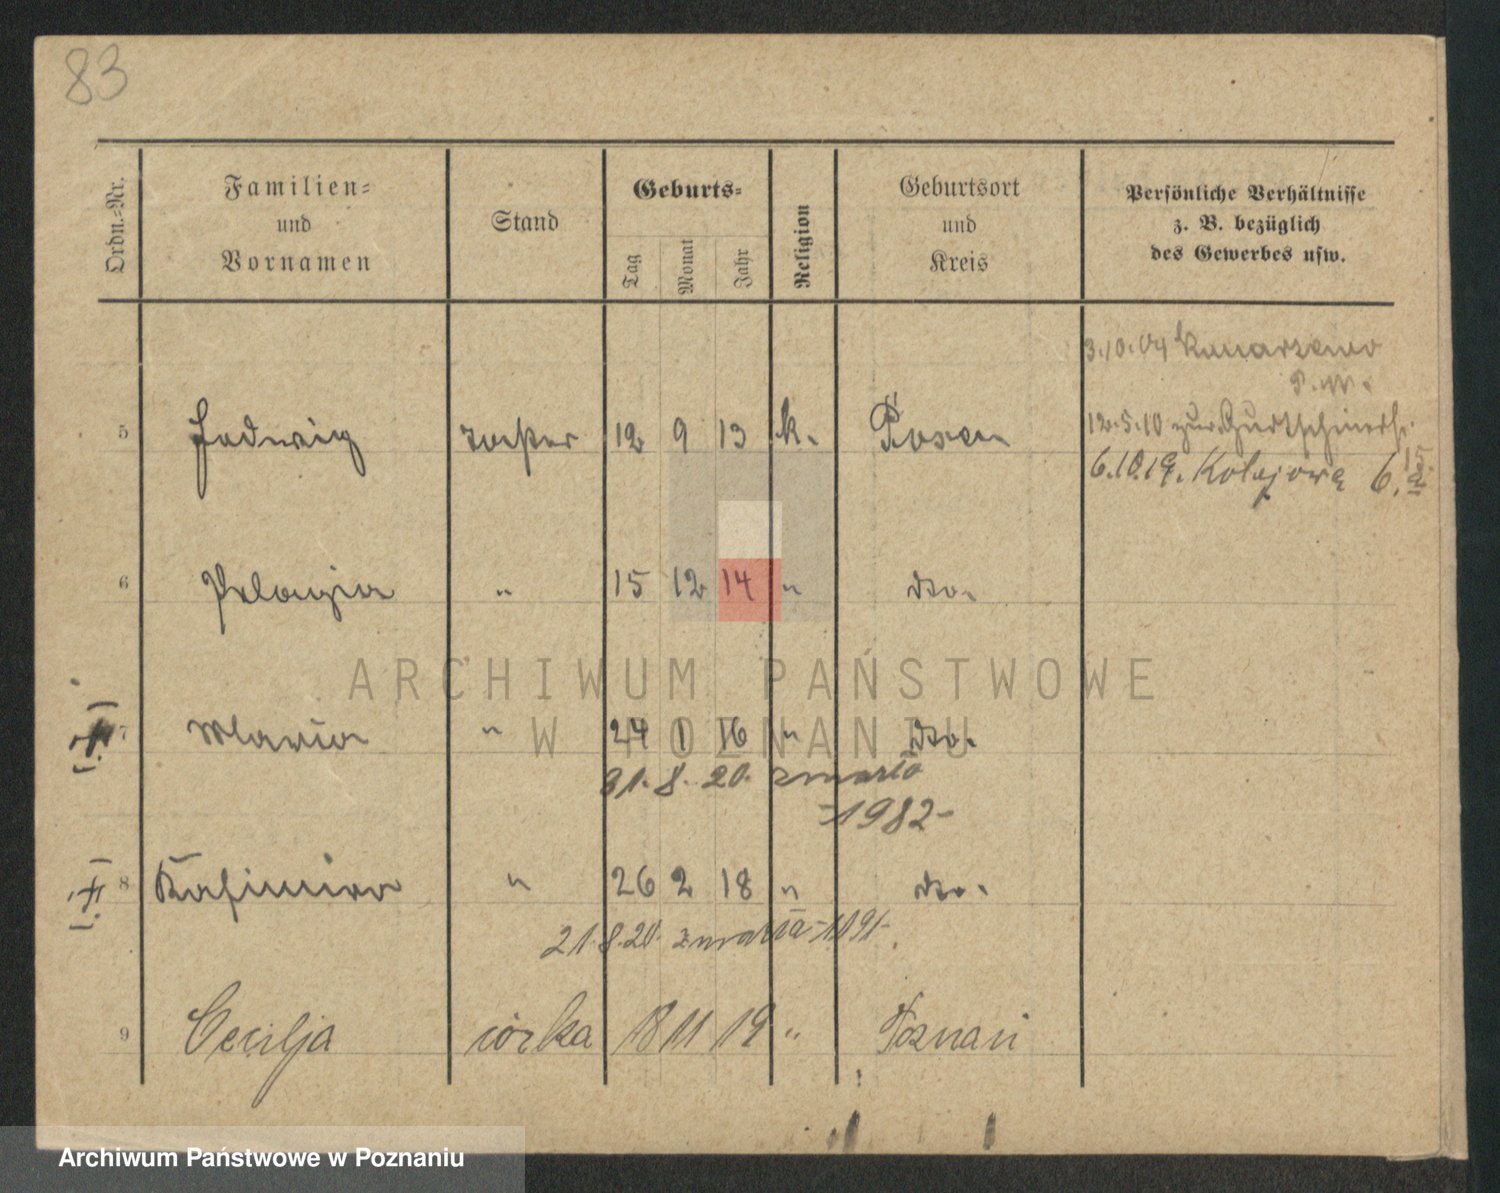 83
Ordn.-Nr.
Familien-
und
Vornamen
Stand
Geburts-
Tag
Monat
Jahr
Religion
Geburtsort
und
Kreis
Persönliche Verhältnisse
z. B. bezüglich
des Gewerbes usw.
3.10.04
5 Jadwiga 12 9 13 k. Posen
12.5.10 zur
6.10.19. Kolejowa 6.
6 Pelagia " 15 12 14 " dto.
ARCHIWUM PAŃSTWOWE
W POZNANIU
7 Maria " 24 1 16 " dto.
31. 8. 20. zmarła
-1982-
8 Kasimira " 26 2 18 " dto.
21.8.20. zmarła -1191-
9 Cecilja córka 18 11 19 " Poznań
Archiwum Państwowe w Poznaniu